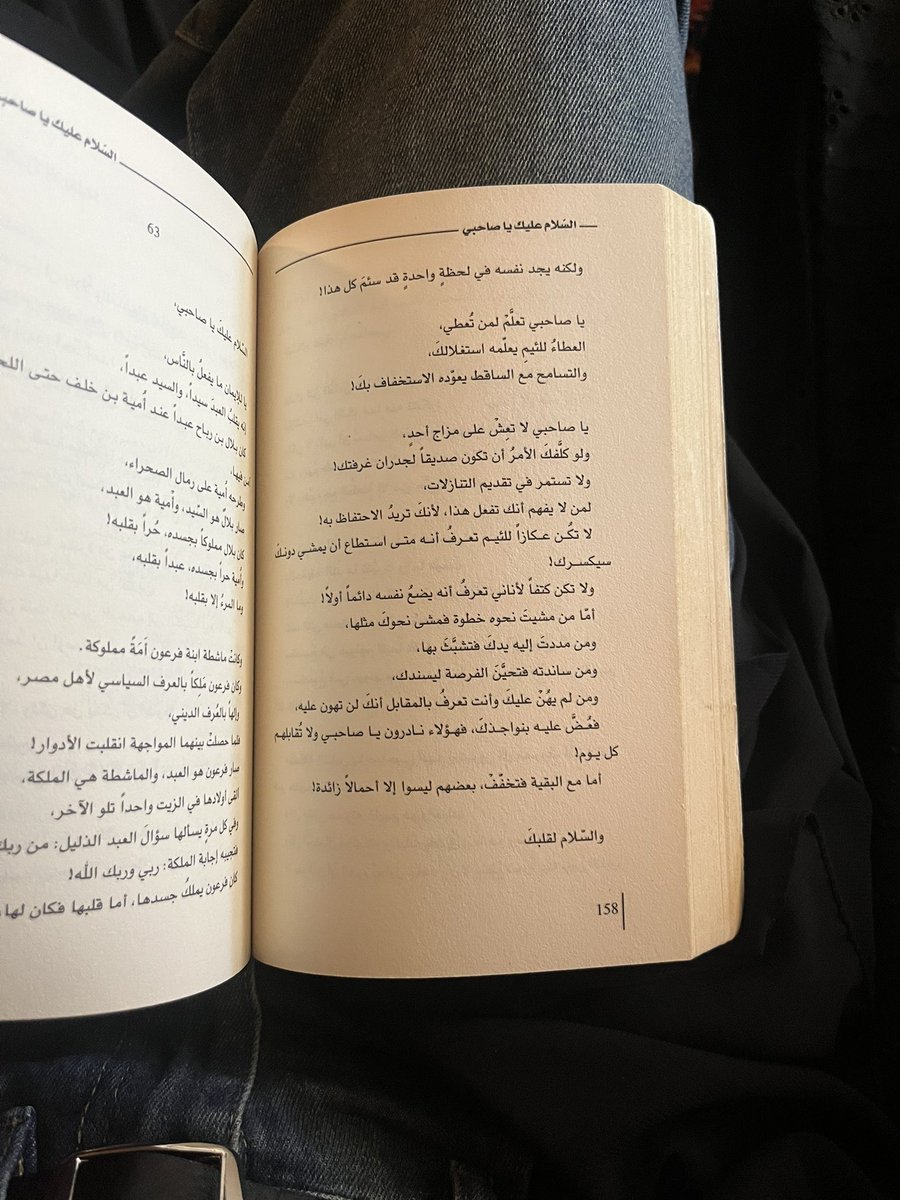 السّلام عليك يا صاحبي
ولكنه يجد نفسه في لحظةٍ واحدةٍ قد سئمَ كل هذا!
يا صاحبي تعلَّمْ لمن تُعطي،
العطاءُ للئيمِ يعلّمه استغلالكَ،
والتسامح مع الساقط يعوّده الاستخفاف بكَ!
يا صاحبي لا تعِشْ على مزاج أحدٍ،
ولو كلَّفكَ الأمرُ أن تكون صديقاً لجدران غرفتك!
ولا تستمر في تقديم التنازلات،
لمن لا يفهم أنك تفعل هذا، لأنكَ تريدُ الاحتفاظ به!
لا تكُن عكازاً للئيم تعرفُ أنه متى استطاع أن يمشي دونكَ
سيكسرك!
ولا تكن كتفاً لأناني تعرفُ أنه يضعُ نفسه دائماً أولاً!
أمّا من مشيتَ نحوه خطوة فمشى نحوكَ مثلها،
ومن مددتَ إليه يدكَ فتشبَّثَ بها،
ومن ساندته فتحيَّنَ الفرصة ليسندك،
ومن لم يهُنْ عليكَ وأنت تعرفُ بالمقابل أنكَ لن تهون عليه،
فعُضَّ عليه بنواجذكَ، فهؤلاء نادرون يا صاحبي ولا تُقابلهم
كل يوم!
أما مع البقية فتخفّفْ، بعضهم ليسوا إلا أحمالاً زائدة!
والسّلام لقلبكَ
158
السّلام عليك يا صاحبي
63
السّلام عليكَ يا صاحبي،
يا للإيمان ما يفعلُ بالنَّاس،
إنه يقلبُ العبدَ سيداً، والسيد عبداً،
كان بلال بن رباح عبداً عند أمية بن خلف حتى
وطرحه أمية على رمال الصحراء،
صار بلالٌ هو السّيد، وأمية هو العبد،
كان بلال مملوكاً بجسده، حُراً بقلبه!
وأمية حراً بجسده، عبداً بقلبه،
وما المرءُ إلا بقلبه!
وكانتْ ماشطة ابنة فرعون أَمَةً مملوكة.
وكان فرعون مَلِكاً بالعرف السياسي لأهل مصر،
وإلهاً بالعُرف الديني،
فلما حصلتْ بينهما المواجهة انقلبت الأدوار!
صار فرعون هو العبد، والماشطة هي الملكة.
ألقى أولادها في الزيت واحداً تلو الآخر،
وفي كل مرةٍ يسألها سؤالَ العبد الذليل: من ربك
فتجيبه إجابة الملكة: ربي وربك الله!
كان فرعون يملكُ جسدها، أما قلبها فكان لها